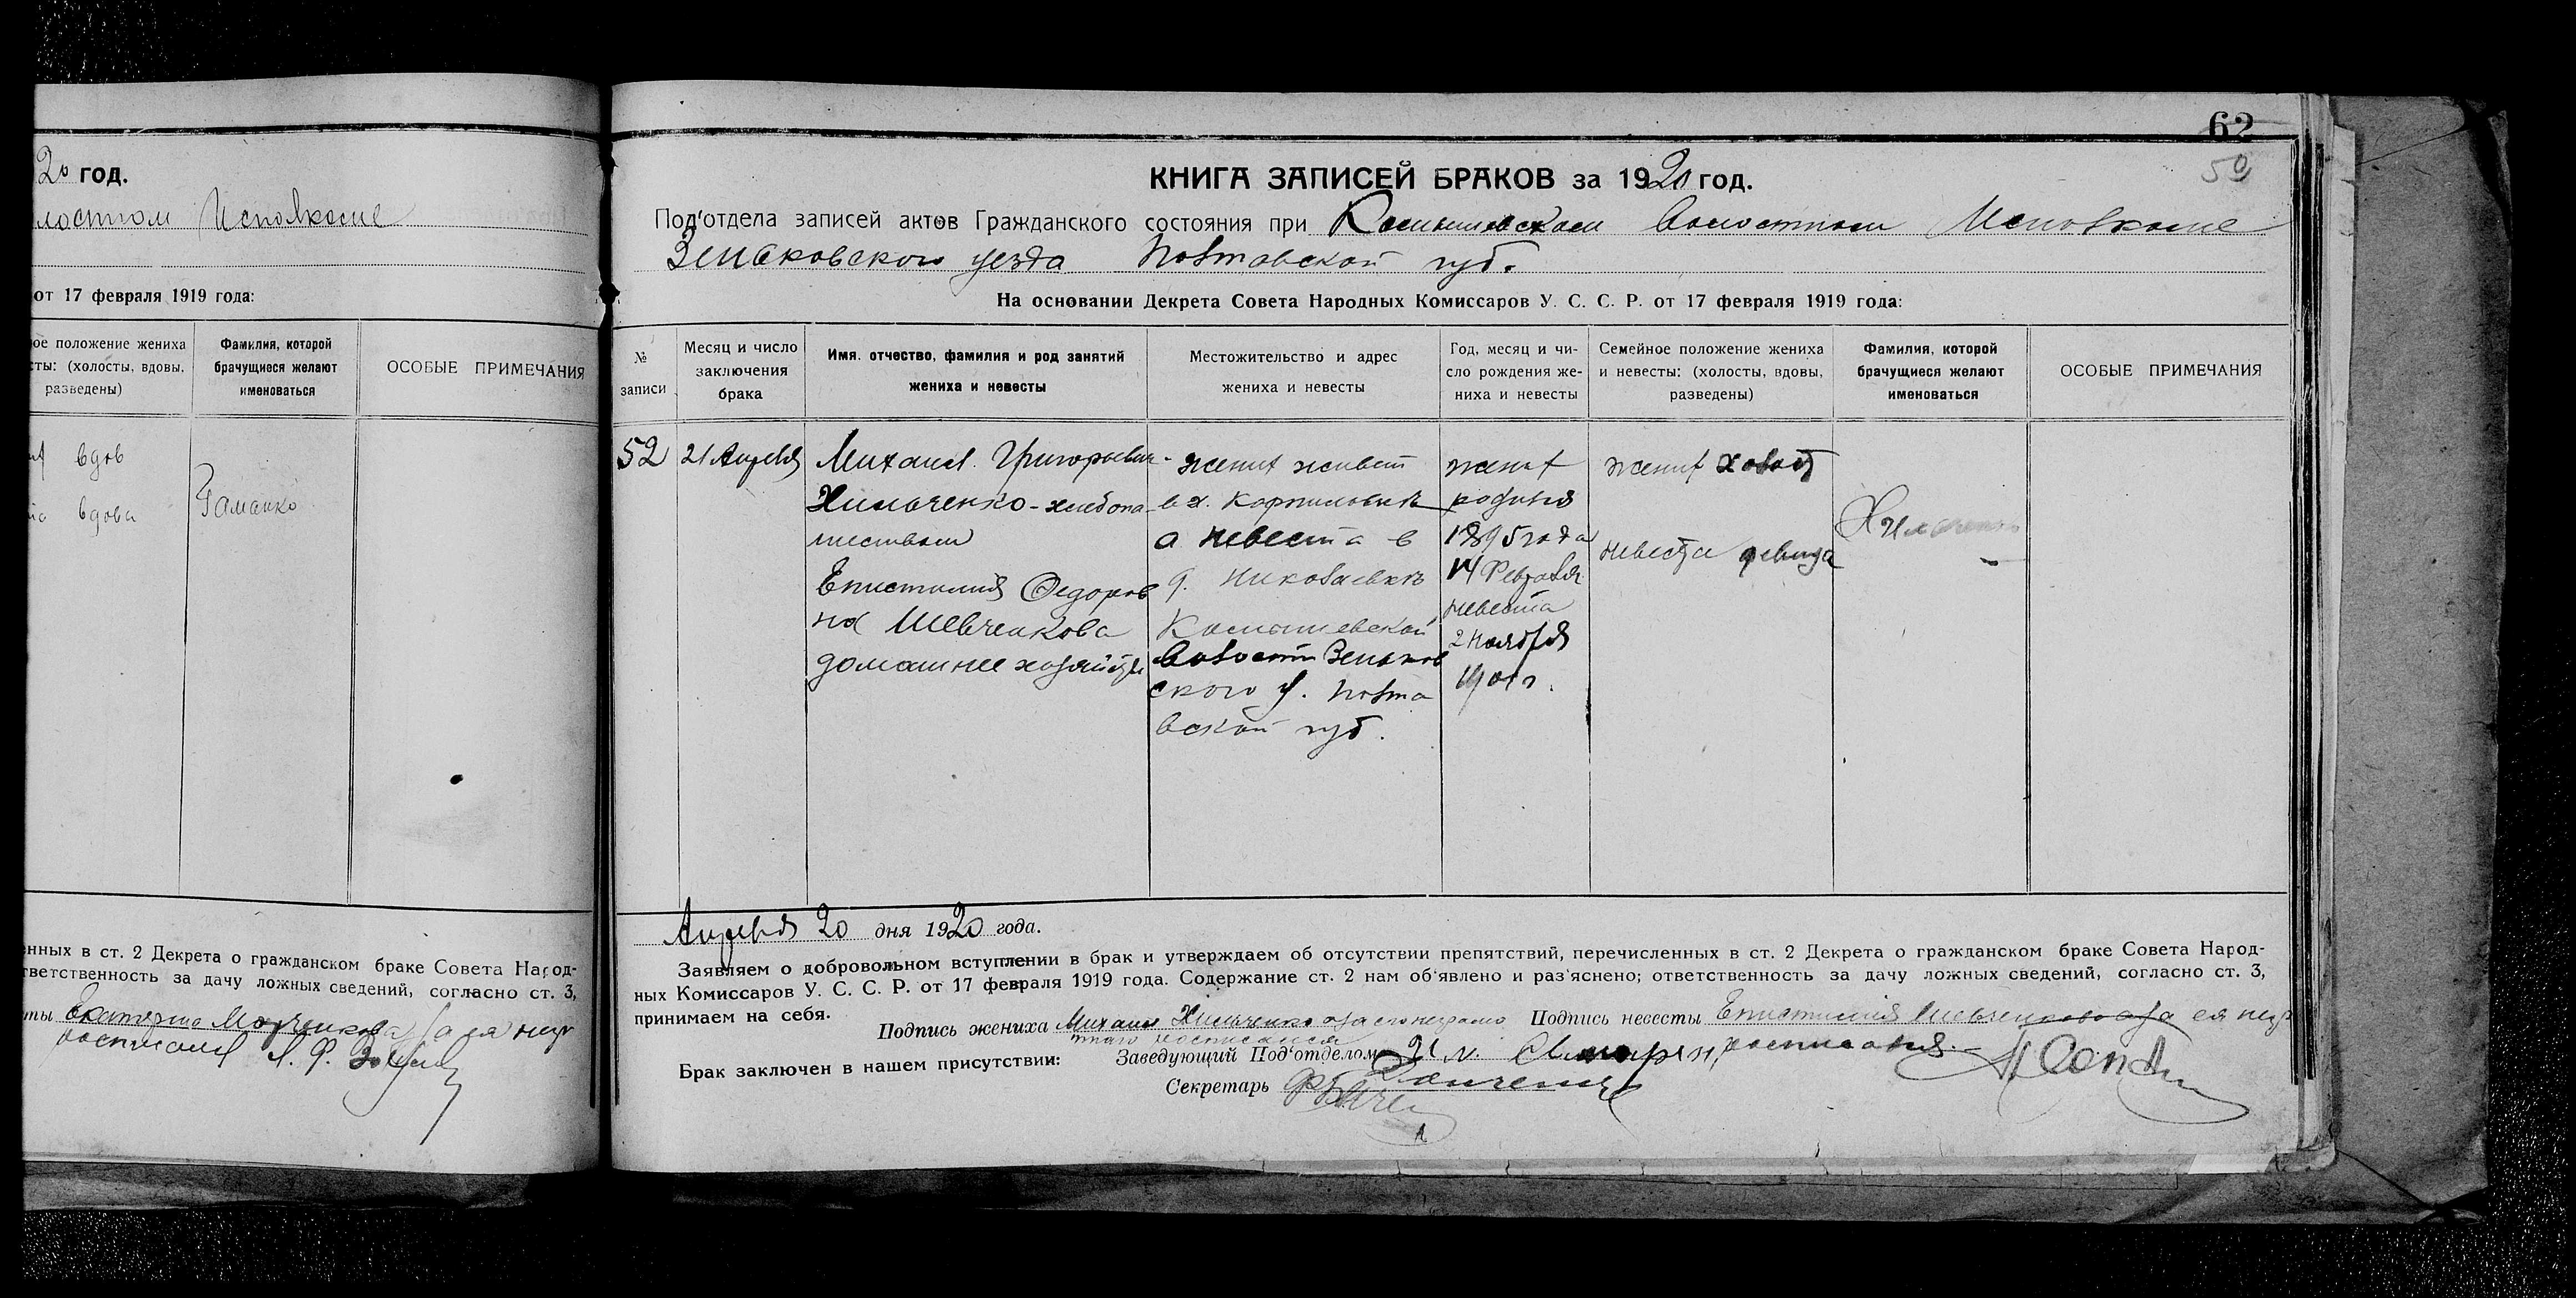 20 год.
лостном Исполкоме
от 17 февраля 1919 года:
ое положение жениха
сты: (холосты, вдовы,
разведены)
Фамилия, которой
брачущиеся желают
именоваться
ОСОБЫЕ ПРИМЕЧАНИЯ
вдов
вдова
Гаманко
енных в ст. 2 Декрета о гражданском браке Совета Народ-
тветственность за дачу ложных сведений, согласно ст. 3,
ты Екатерина Марченкова за ея негр
росписался А. Ф.
62
59
КНИГА ЗАПИСЕЙ БРАКОВ за 1920 год.
Под'отдела записей актов Гражданского состояния при Комышевском Волостном Исполкоме
Зеньковского уезда Полтавской губ.
На основании Декрета Совета Народных Комиссаров У. С. С. Р. от 17 февраля 1919 года:
№
записи
Месяц и число
заключения
брака
Имя, отчество, фамилия и род занятий
жениха и невесты
Местожительство и адрес
жениха и невесты
Год, месяц и чи-
сло рождения же-
ниха и невесты
Семейное положение жениха
и невесты: (холосты, вдовы,
разведены)
Фамилия, которой
брачущиеся желают
именоваться
ОСОБЫЕ ПРИМЕЧАНИЯ
52
21 Апреля
Михаил Григорьевич
Хильченко - хлебопа-
шеством
Епистимия Федоров
на Шевченкова
домашнее хозяйство
жених живет
в х. Корпиловке
а невеста в
д. Николаевке
Комышевской
Волости Зеньков
ского у. Полта
вской губ.
жених
родился
1895 года
14 Февраля
невеста
2 Ноября
1901 г.
жених холост
невеста девица
Хильченко
Апреля 20 дня 1920 года.
Заявляем о добровольном вступлении в брак и утверждаем об отсутствии препятствий, перечисленных в ст. 2 Декрета о гражданском браке Совета Народ-
ных Комиссаров У. С. С. Р. от 17 февраля 1919 года. Содержание ст. 2 нам об'явлено и раз'яснено; ответственность за дачу ложных сведений, согласно ст. 3,
принимаем на себя.
Подпись жениха Михаил Хильченко а за его неграмо
тного росписался
Подпись невесты Епистимия Шевченкова а за ея негр
росписался
Брак заключен в нашем присутствии:
Заведующий Под'отделом
Секретарь